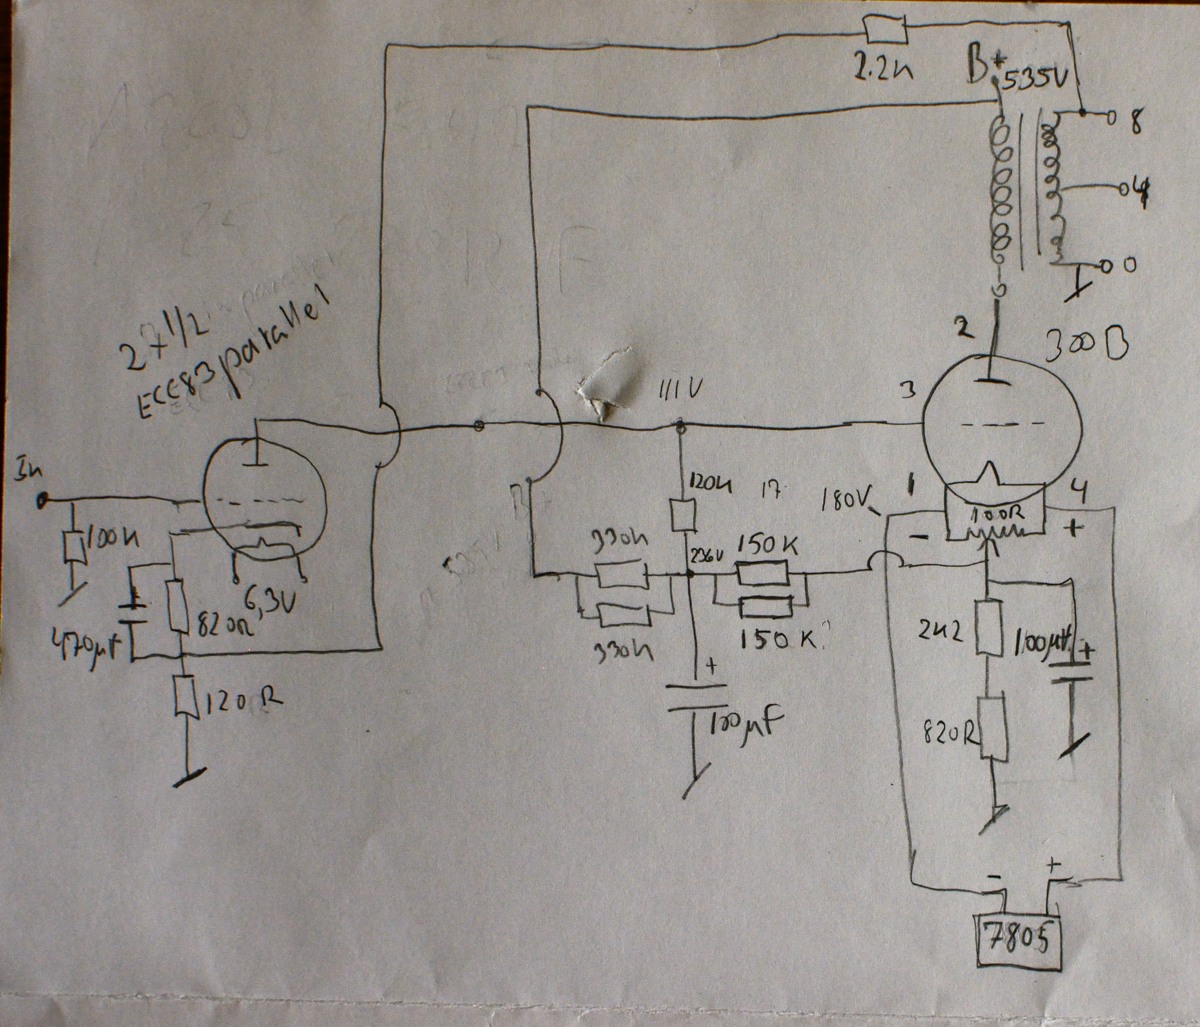 2.2k
B+
535V
8
4
0
2x1/2
ECC83 parallel
2
300B
3
111V
In
100K
120K
17
180V
1
4
100R
-
+
330K
236V
150K
6,3V
820R
470µF
330K
150K
2k2
100µF
+
+
120R
100µF
820R
-
+
7805